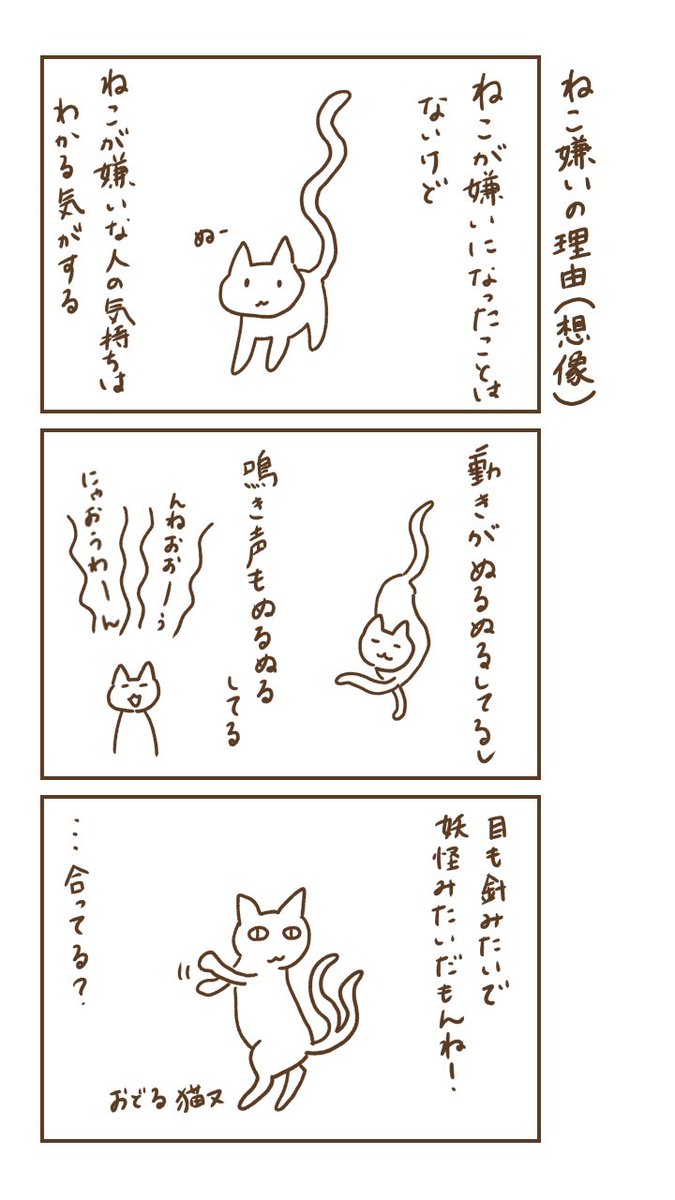 ねこ嫌いの理由(想像)
ねこが嫌いになったことは
ないけど
ぬー
ねこが嫌いな人の気持ちは
わかる気がする
動きがぬるぬるしてるし
鳴き声もぬるぬる
してる
んねおおーぅ
にゃおうわーん
目も針みたいで
妖怪みたいだもんね!
おどる猫又
…合ってる?